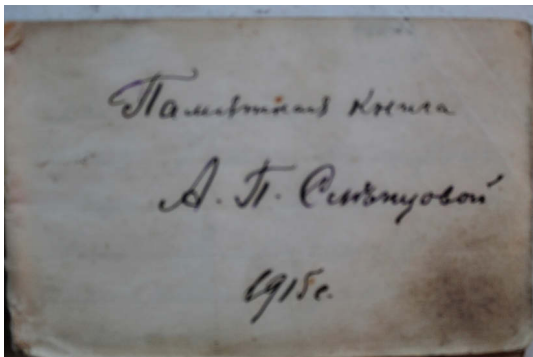 Памятная книга
А. П. Слѣпцовой
1915г.